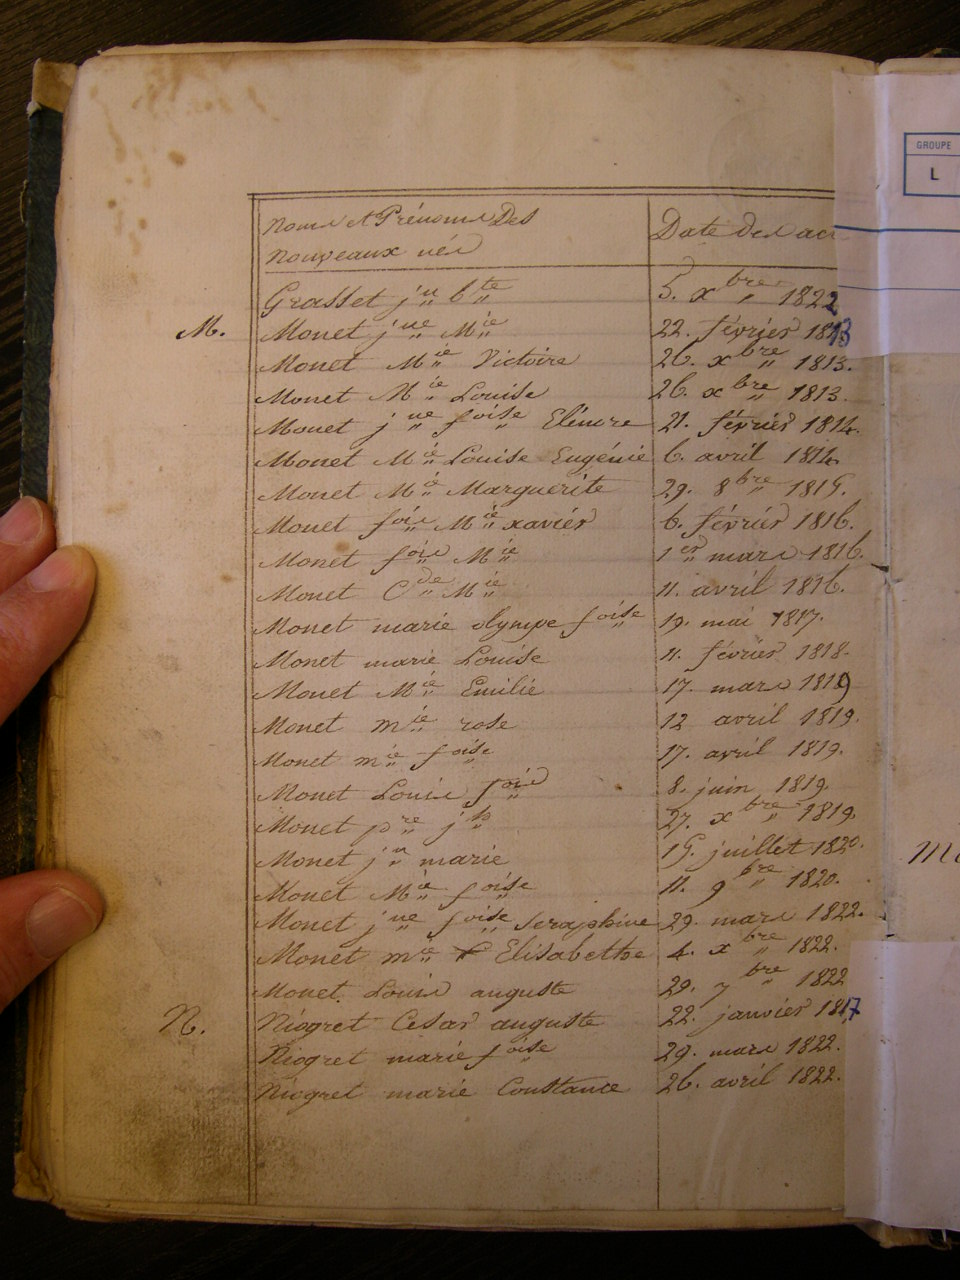 GROUPE
L
Noms et Prénoms Des
Nouveaux nés
Date des act
Grasset j.n b.te 5. x bre 1822
M. Monet j.ne M.ie 22. février 1813
Monet M.ie Victoire 26. x bre 1813.
Monet M.ie Louise 26. x bre 1813.
Monet j.ne f.oise Elénore 21. février 1814.
Monet M.ie Louise Eugénie 6. avril 1814.
Monet M.ie Marguerite 29. 8 bre 1815.
Monet f.ois M.ie xavier 6. février 1816.
Monet f.ois M.ie 1er mars 1816.
Monet C.de M.ie 11. avril 1816.
Monet marie olympe f.oise 19. mai 1817.
Monet marie Louise 11. février 1818.
Monet M.ie Emilie 17. mars 1819
Monet m.ie rose 12 avril 1819.
Monet m.ie f.oise 17. avril 1819.
Monet Louis f.ois 8. juin 1819.
Monet p.re j.h 27. x bre 1819.
Monet j.n marie 15. juillet 1820.
Monet M.ie f.oise 11. 9 bre 1820.
Monet j.ne f.oise Seraphine 29. mars 1822.
Monet m.ie Elisabethe 4. x bre 1822.
Monet Louis auguste 29. 7 bre 1822
N. Niogret Cesar auguste 22. janvier 1817
Niogret marie f.oise 29. mars 1822.
Niogret marie Constance 26. avril 1822.